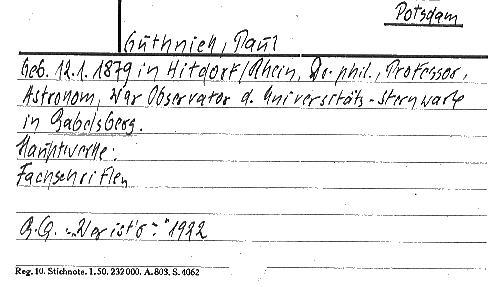 Potsdam
Guthnick, Paul
Geb. 12.1.1879 in Hitdorf/Rhein, Dr. phil., Professor,
Astronom, war Observator d. Universitäts-Sternwarte
in Babelsberg.
Hauptwerke:
Fachschriften
R.G. "Wer ist's" 1922
Reg. 10. Stichnote. I. 50. 232000. A. 803. S. 4062